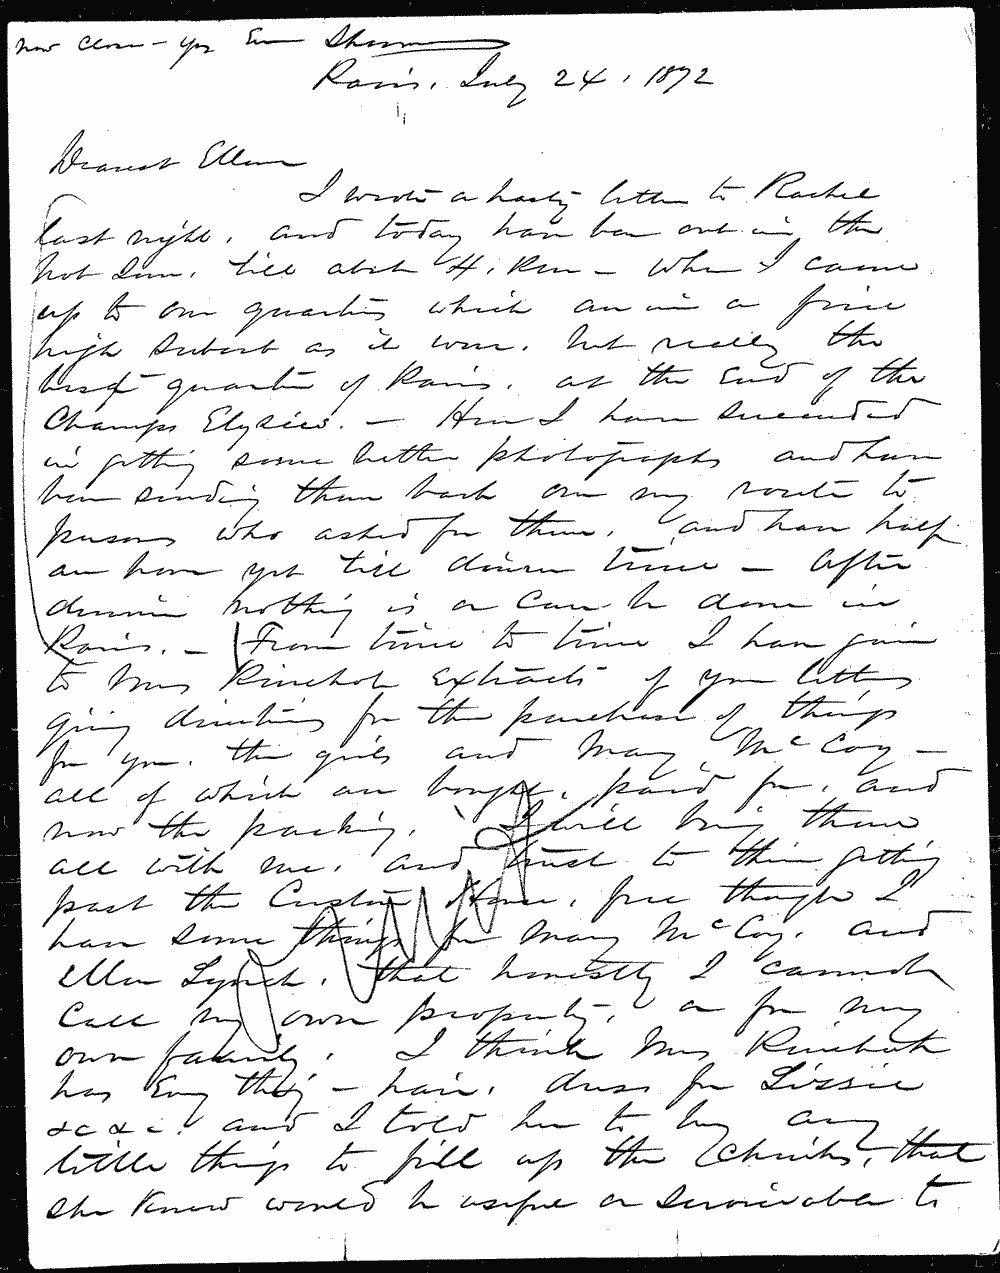 now close - yrs Ever Sherman
Paris, July 24, 1872
Dearest Ellen
I wrote a hasty letter to Rachel
last night, and today have been out in the
hot Sun, till about 4. P.m - when I came
up to our quarters which are in a fine
high suburb as it were, but really the
best quarter of Paris, at the End of the
Champs Elysees. - Here I have succeeded
in getting some better photographs and have
been sending them back on my route to
persons who asked for them, and have half
an hour yet till dinner time - After
dinner nothing is or can be done in
Paris. - From time to time I have given
to Mrs Rinehart extracts of your letters
giving directions for the purchase of things
for you, the girls and Mary McCoy -
all of which are bought, paid for, and
now the packing. I will bring them
all with me, and trust to their getting
past the Custom House, free though I
have some things for Mary McCoy, and
Ellen Lynch, that honestly I cannot
call my own property, or for my
own family. I think Mrs Rinehart
has Every thing - hair, dress for Lizzie
&c &c. and I told her to buy any
little things to fill up the chinks, that
she knew would be useful or serviceable to